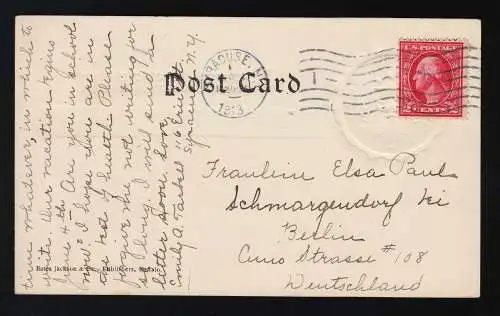 time whatever, in which to
write. Our vacation begins
June 4th. Are you in school
now? I hope you are in
the best of health. Please
forgive me not writing for
so long. I will send a
letter soon. Love,
Emily A. Tarbell 116
Syracuse N.Y.
Post Card
SYRACUSE, N.Y.
1913
U.S. POSTAGE
2 CENTS 2
Fraulein Elsa Paul
Schmargendorf bei
Berlin
Cuno Strasse #108
Deutschland
Bates Jackson & Co., Publishers, Buffalo